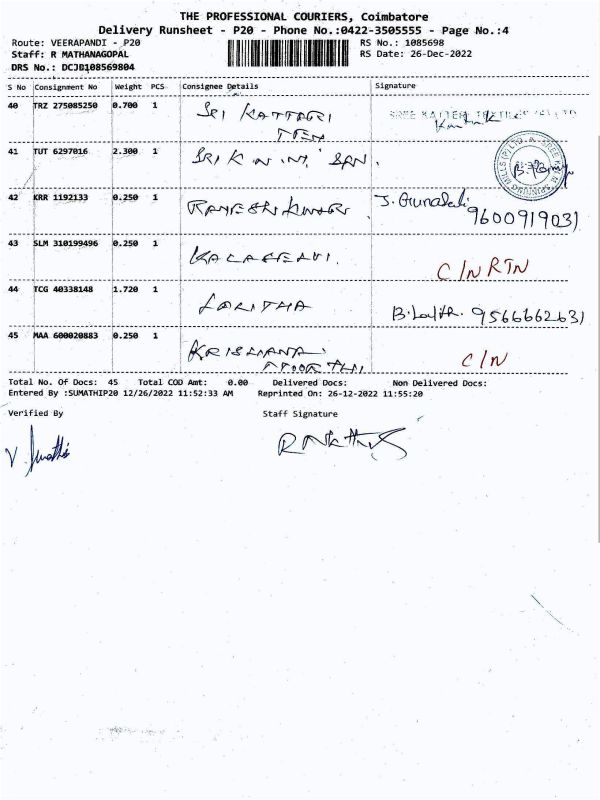 THE PROFESSIONAL COURIERS, Coimbatore
Delivery Runsheet - P20 - Phone No.:0422-3505555 - Page No.:4
Route: VEERAPANDI - P20 RS No.: 1085698
Staff: R MATHANAGOPAL RS Date: 26-Dec-2022
DRS No.: DCJB108569804
S No Consignment No Weight PCS Consignee Details Signature
40 TRZ 275085250 0.700 1 SRI KATTARI
TEX
41 TUT 6297016 2.300 1
42 KRR 1192133 0.250 1 RAMESH KUMAR J. 9600919031
43 SLM 310199496 0.250 1 KALAISELVI. C/N RTN
44 TCG 40338148 1.720 1 LALITHA B. Lalith. 9566662631
45 MAA 600020883 0.250 1 KRISHANA C/N
Total No. Of Docs: 45 Total COD Amt: 0.00 Delivered Docs: Non Delivered Docs:
Entered By :SUMATHIP20 12/26/2022 11:52:33 AM Reprinted On: 26-12-2022 11:55:20
Verified By Staff Signature